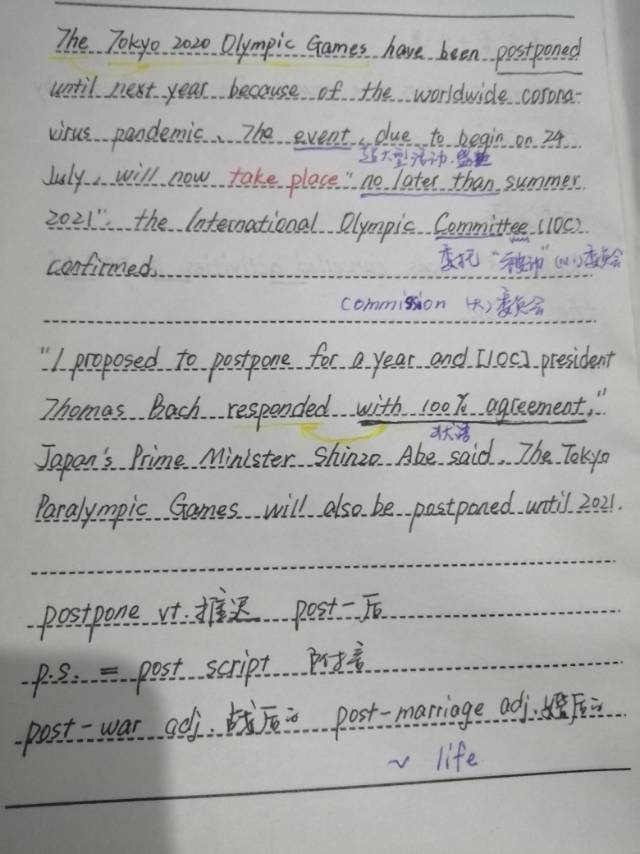 The Tokyo 2020 Olympic Games have been postponed
until next year because of the worldwide corona-
virus pandemic. The event, due to begin on 24
超大型活动.
July, will now take place "no later than summer
2021", the International Olympic Committee (IOC)
委托 "被动" (小)委员会
confirmed.
commission (大)委员会
"I proposed to postpone for a year and [IOC] president
Thomas Bach responded with 100% agreement,"
状语
Japan's Prime Minister Shinzo Abe said. The Tokyo
Paralympic Games will also be postponed until 2021.
postpone vt. 推迟 post-后
p.s. = post script 附言
post-war adj. 战后的 post-marriage adj. 婚后的
~ life